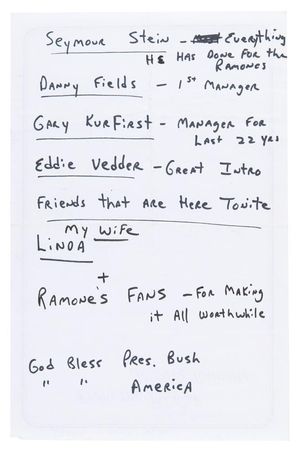 Seymour Stein - Everything
He has done for the
Ramones
Danny Fields - 1st Manager
Gary Kurfirst - Manager for
Last 22 yrs
Eddie Vedder - Great Intro
Friends that are here Tonite
My wife
Linda
+
Ramone's Fans - For Making
it All worthwhile
God Bless Pres. Bush
" " America